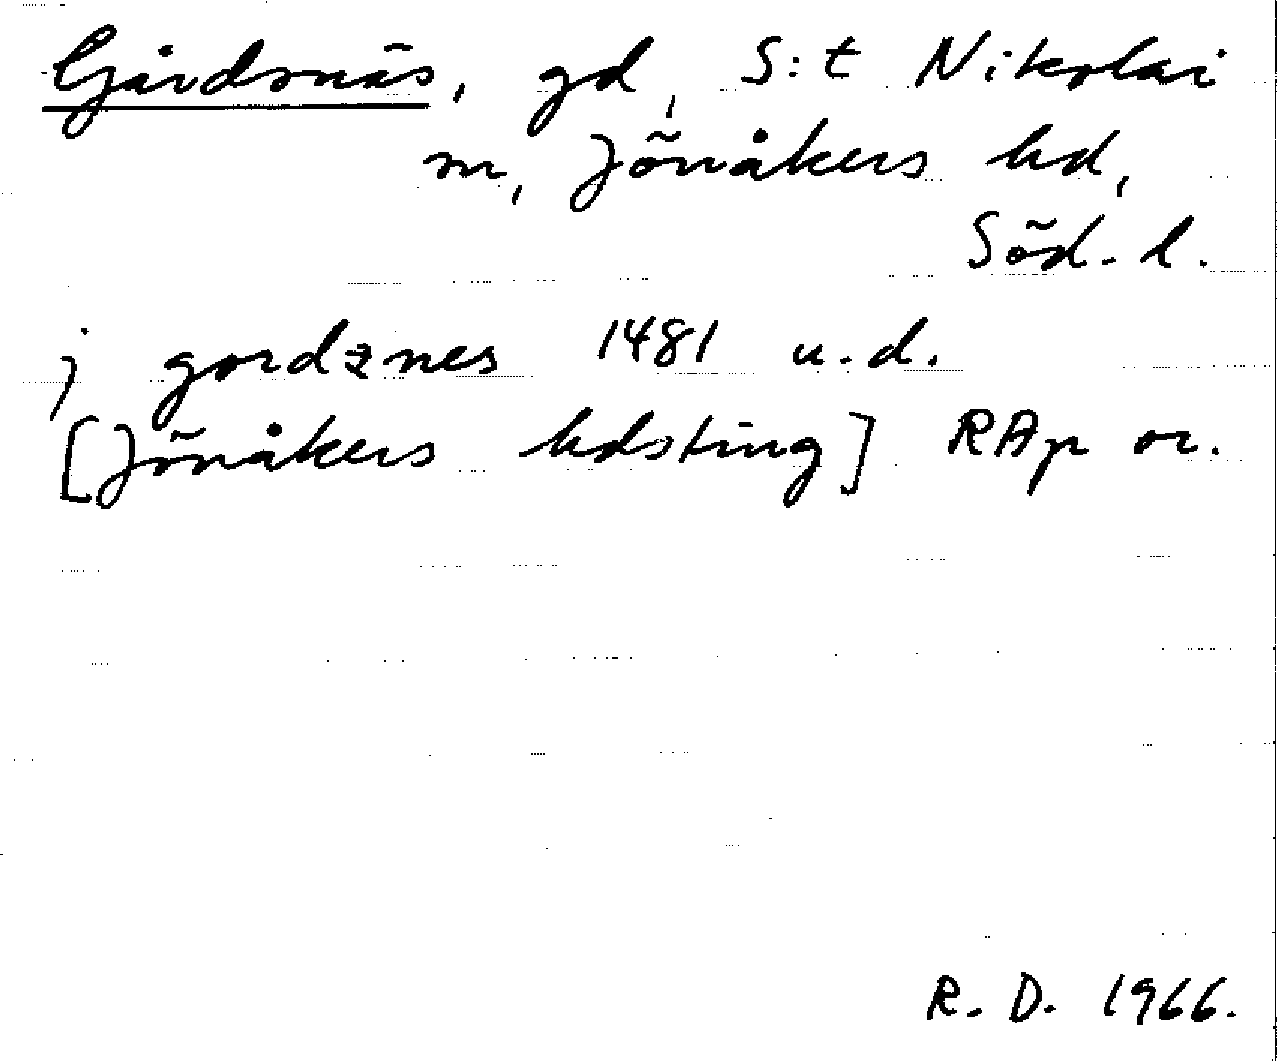 Gårdsnäs, gd, S:t Nikolai
sn, Jönåkers hd,
Söd. l.
j gordznes 1481 u.d.
[Jönåkers hdsting] RAp or.
R. D. 1966.